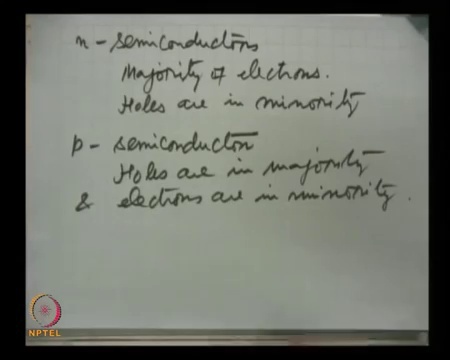 n - semiconductors
Majority of electrons.
Holes are in minority
p - semiconductor
Holes are in majority
& electrons are in minority.
NPTEL